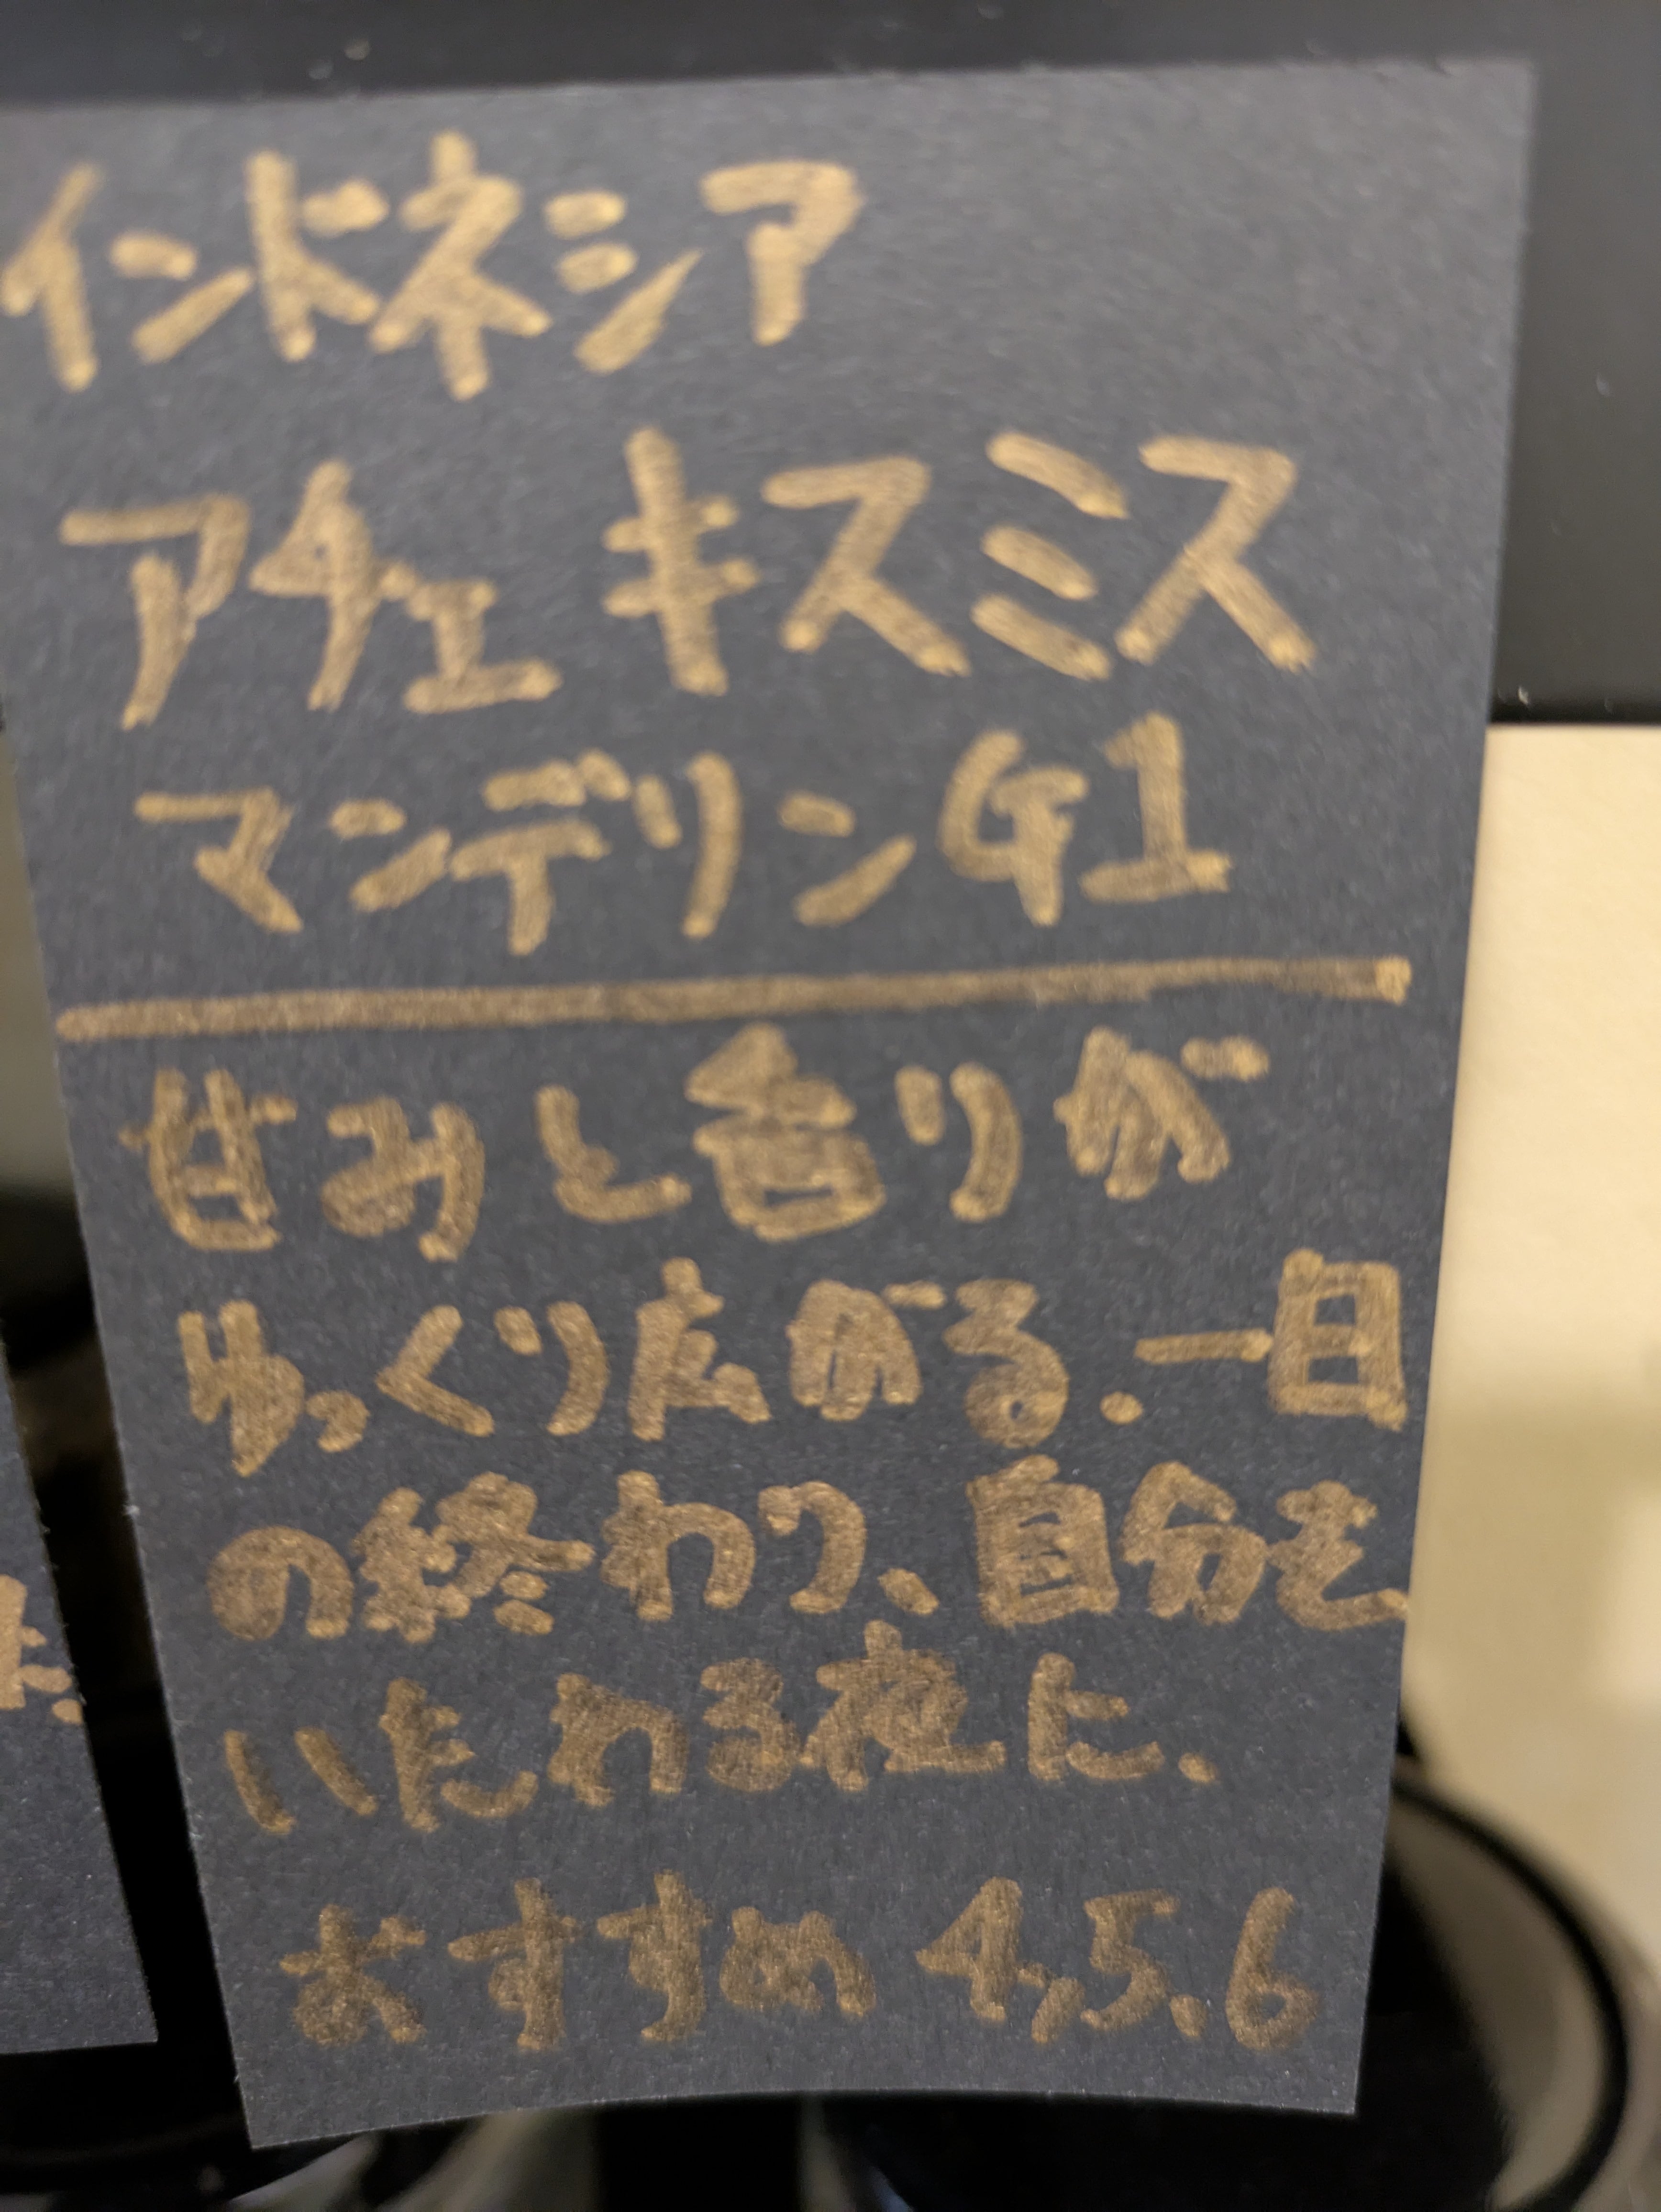 インドネシア
アチェ キスミス
マンデリンG1
甘みと香りが
ゆっくり広がる.一日
の終わり、自分を
いたわる夜に.
おすすめ 4,5,6